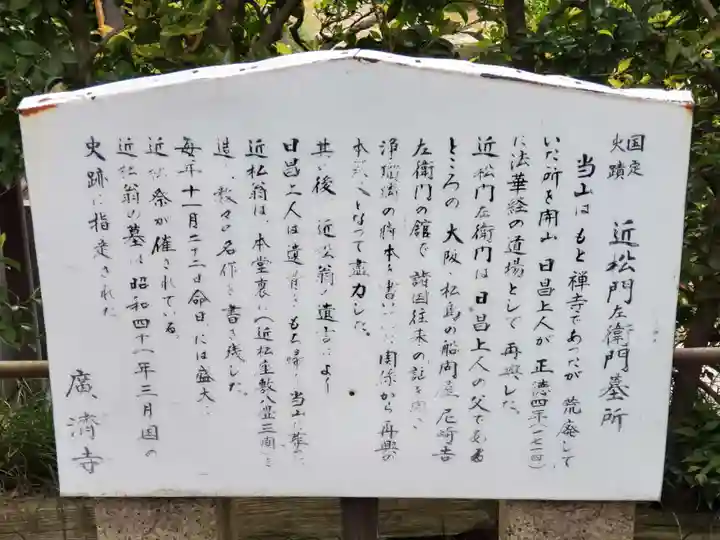 国定
史蹟
近松門左衛門墓所
当山はもと禅寺であったが荒廃して
いた所を開山日昌上人が正徳四年(一七一四)
に法華経の道場として再興した。
近松門左衛門は日昌上人の父である
ところの大阪・松島の船問屋尼崎吉
左衛門の館で諸国往来の話を聞き
浄瑠璃の脚本を書いていた関係から再興の
本願人となって盡力した。
其の後 近松翁の遺言により
日昌上人は遺骨をもち帰り当山に葬
近松翁は、本堂裏に(近松座敷八畳三間)を
造り、数々の名作を書き残した。
毎年十一月二十二日命日には盛大に
近松祭が催されている。
近松翁の墓は昭和四十一年三月国の
史跡に指定された
廣濟寺